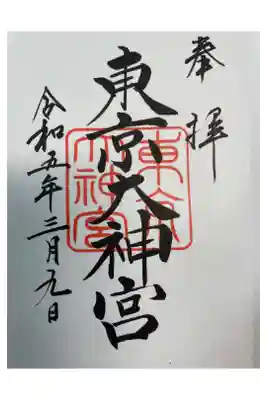 奉拝
東京大神宮
東京大神宮
令和五年三月九日